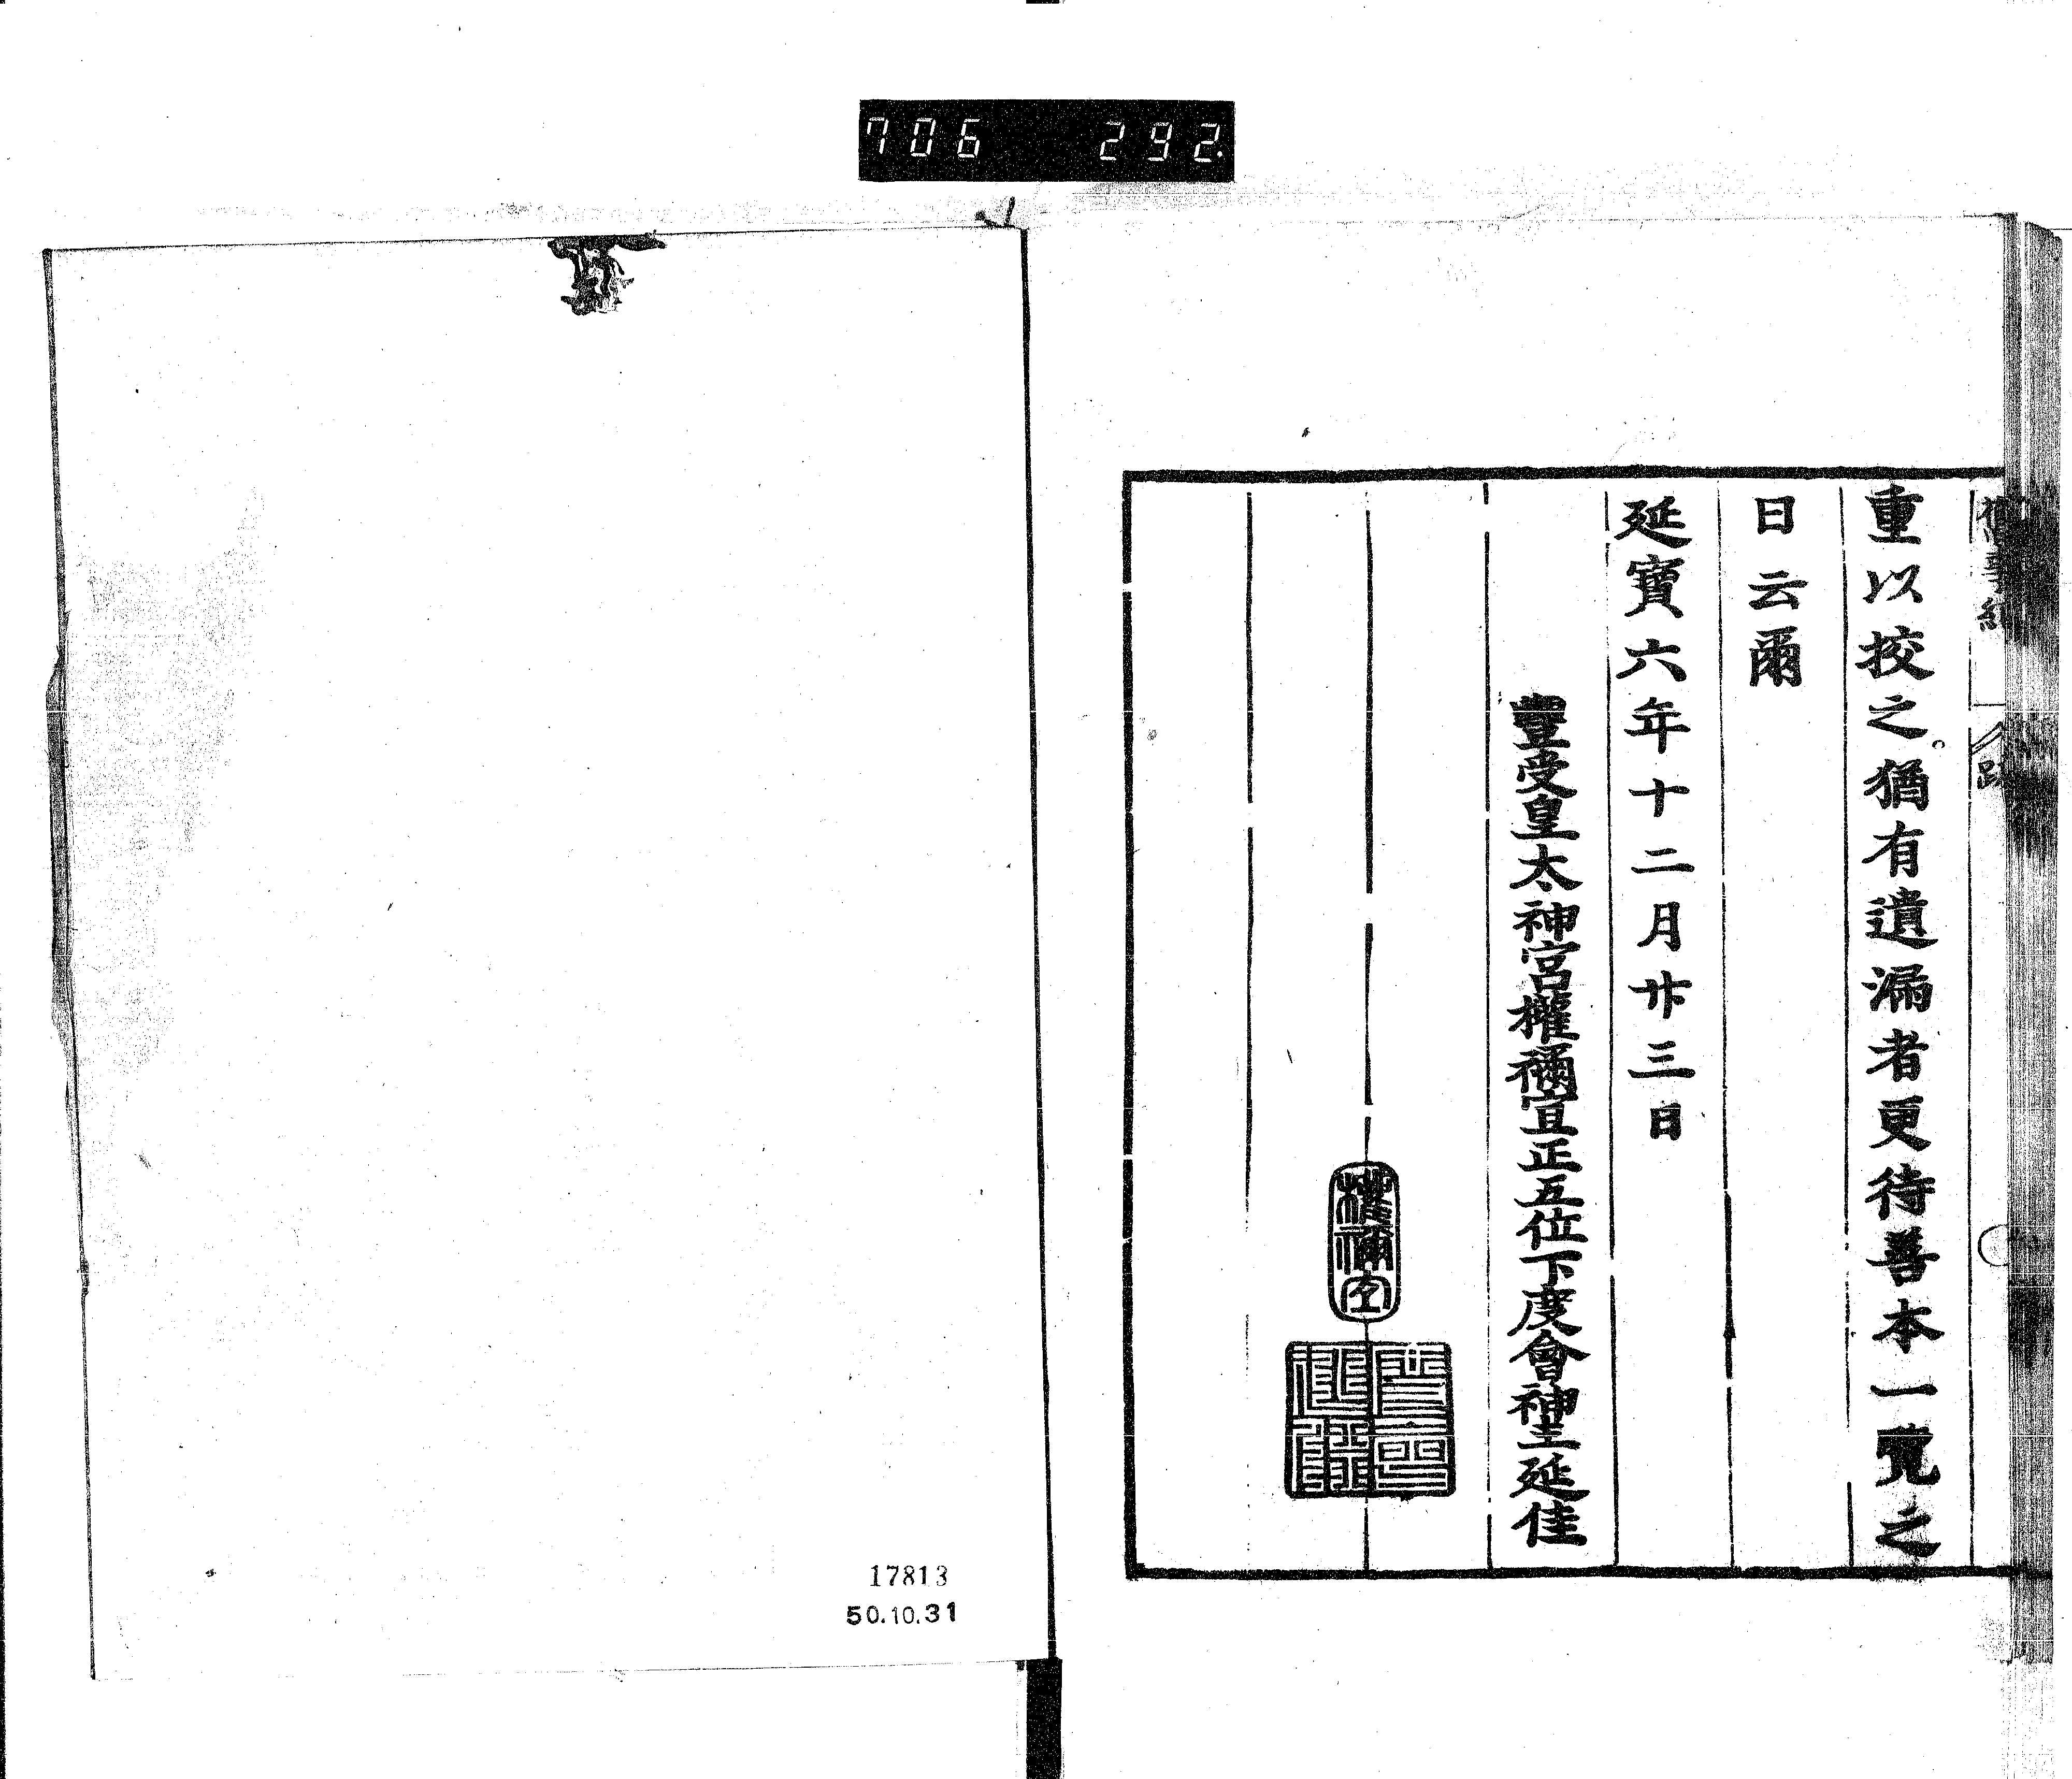 706 292.
重以挍之。猶有遺漏者更待善本一覽之
日云爾
延寶六年十二月廿三日
豐受皇太神宮權禰宜正五位下度會神主延佳
權禰宜
17813
50.10.31